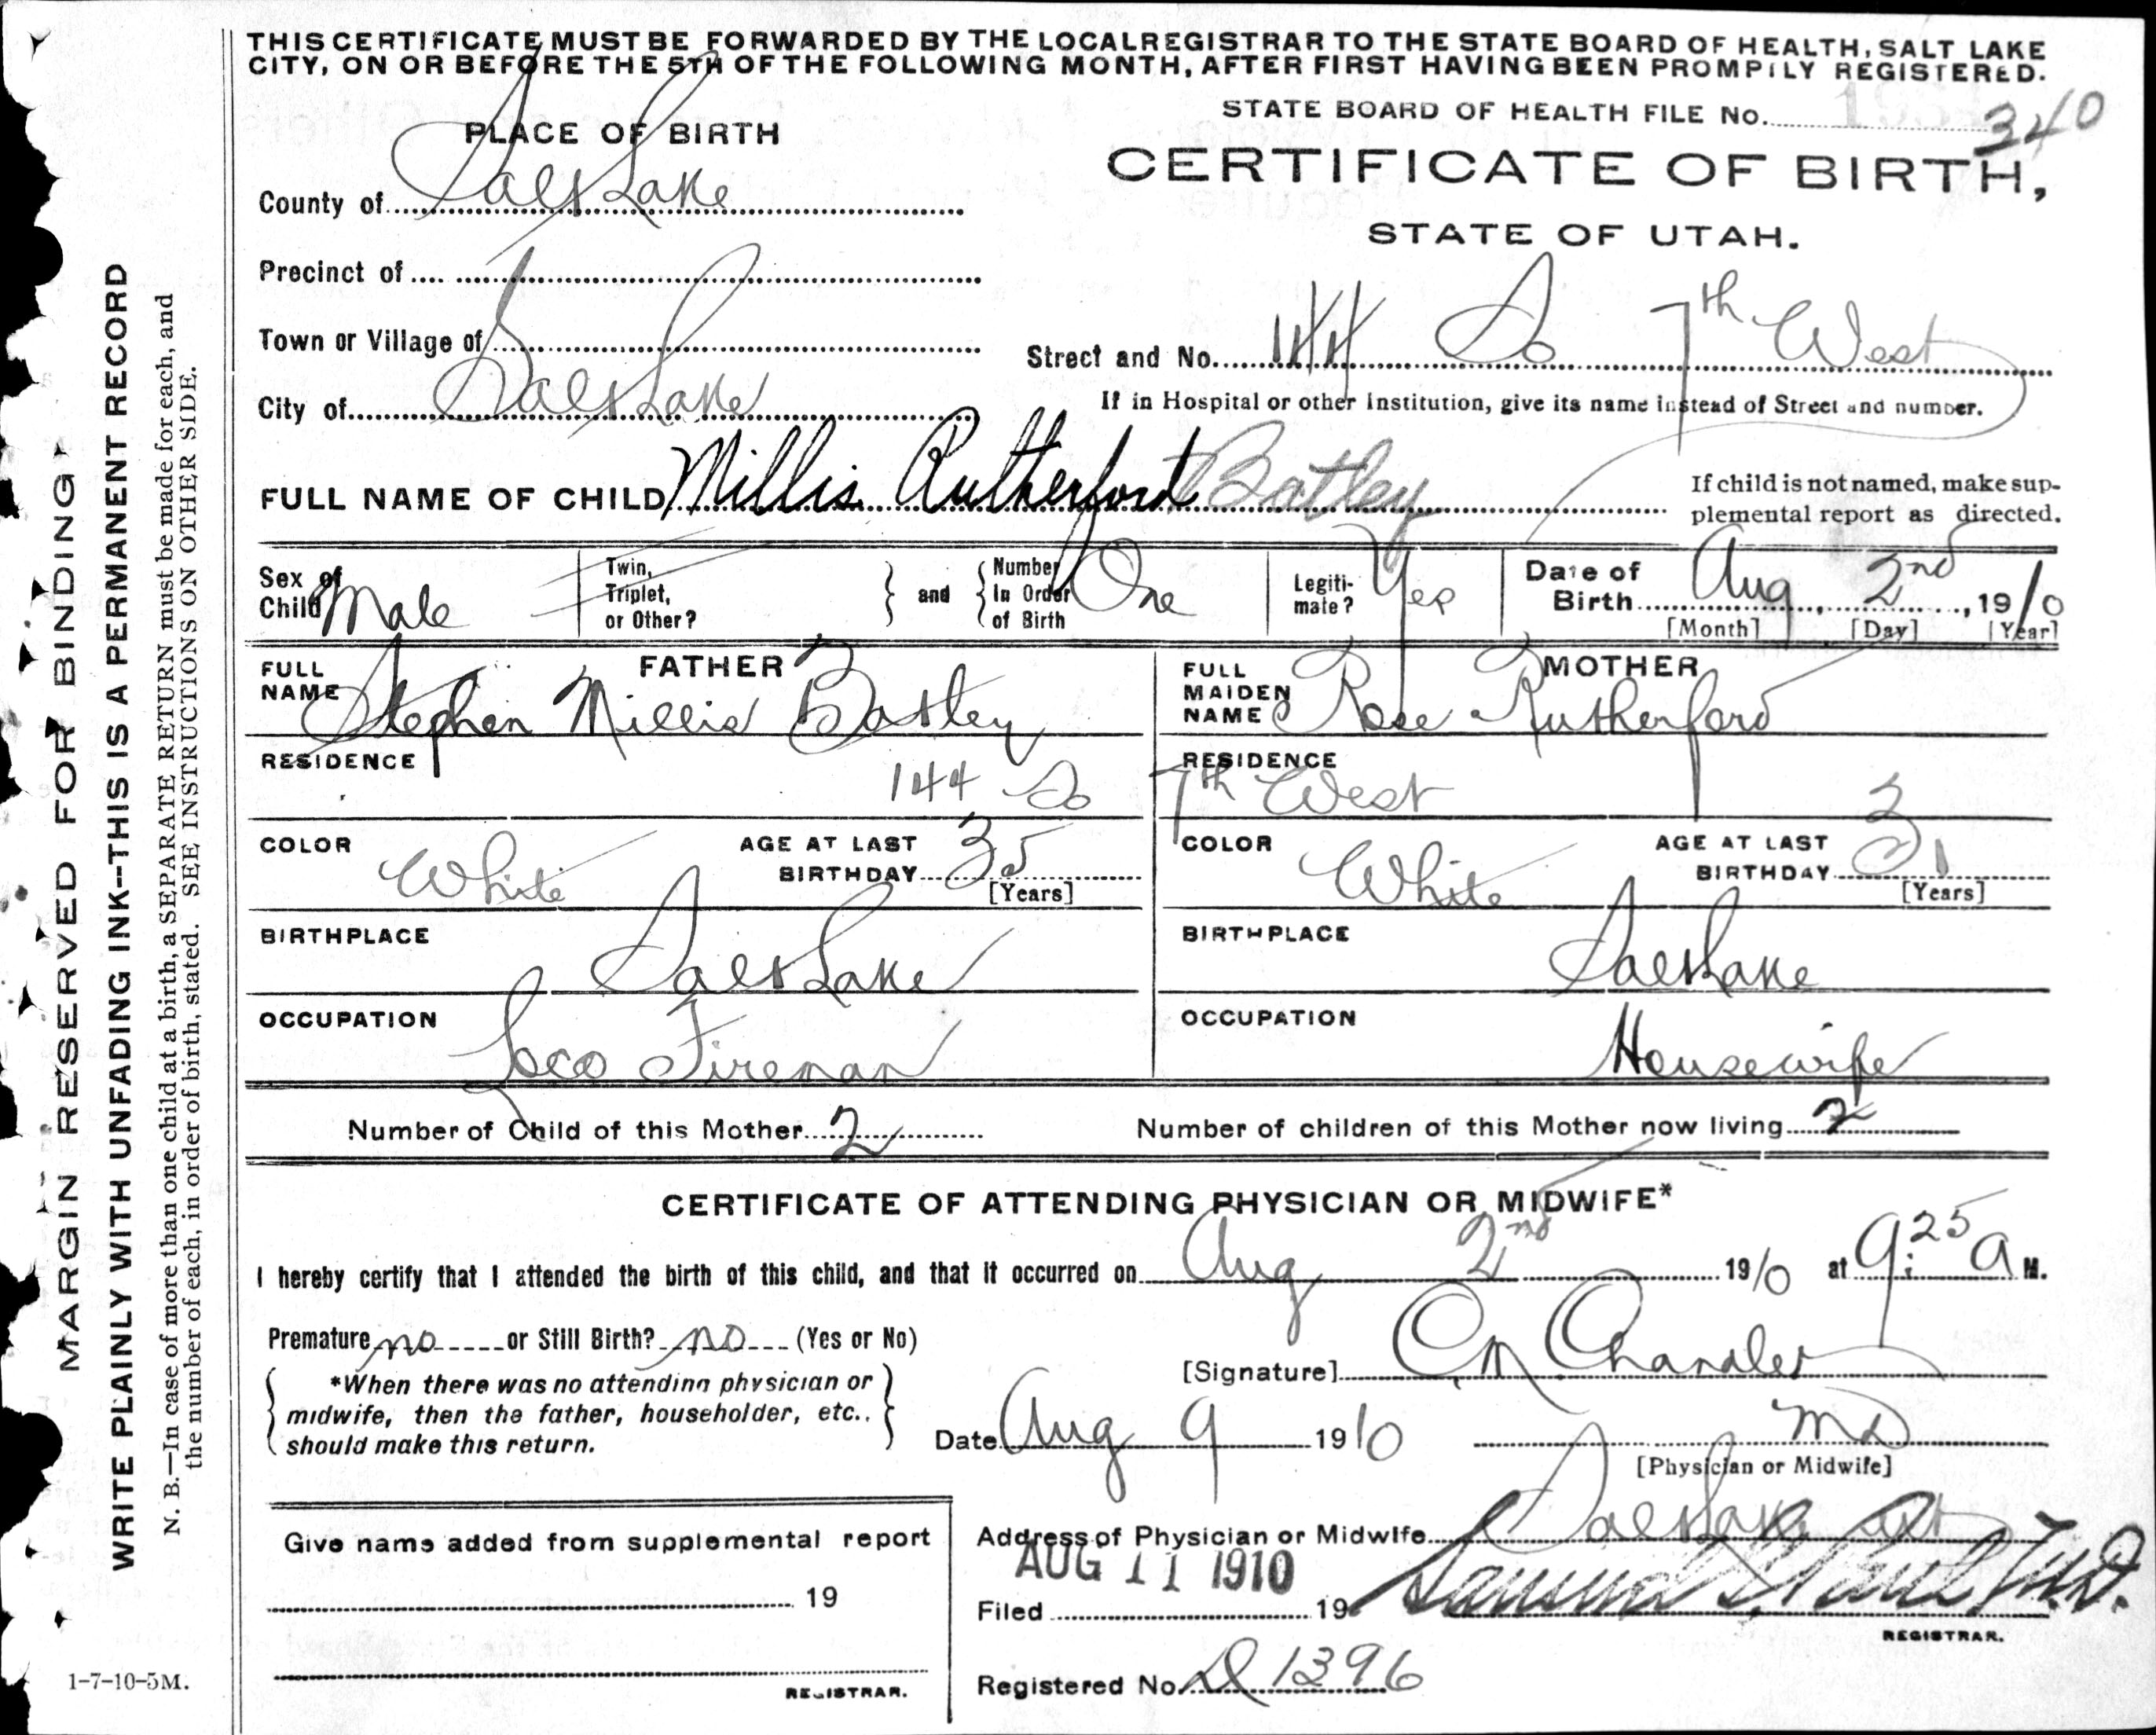 THIS CERTIFICATE MUST BE FORWARDED BY THE LOCAL REGISTRAR TO THE STATE BOARD OF HEALTH, SALT LAKE
CITY, ON OR BEFORE THE 5TH OF THE FOLLOWING MONTH, AFTER FIRST HAVING BEEN PROMPILY REGISTERED.
STATE BOARD OF HEALTH FILE No. 340
PLACE OF BIRTH
CERTIFICATE OF BIRTH,
STATE OF UTAH.
County of Salt Lake
Precinct of
Town or Village of
Street and No. 144 So 7th West
City of Salt Lake
If in Hospital or other Institution, give its name instead of Street and number.
FULL NAME OF CHILD Millis Rutherford Batley
If child is not named, make sup-
plemental report as directed.
Sex of Child Male
Twin, Triplet, or Other?
and
Number In Order of Birth One
Legiti-mate? Yes
Date of Birth Aug 2nd, 1910
[Month] [Day] [Year]
FATHER
FULL NAME Stephen Millis Batley
MOTHER
FULL MAIDEN NAME Rose Rutherford
RESIDENCE 144 So
RESIDENCE 7th West
COLOR White
AGE AT LAST BIRTHDAY 35
[Years]
COLOR White
AGE AT LAST BIRTHDAY 31
[Years]
BIRTHPLACE Salt Lake
BIRTHPLACE Salt Lake
OCCUPATION Loco Fireman
OCCUPATION Housewife
Number of Child of this Mother 2
Number of children of this Mother now living 2
CERTIFICATE OF ATTENDING PHYSICIAN OR MIDWIFE*
I hereby certify that I attended the birth of this child, and that it occurred on Aug 2nd 1910 at 9:25 a M.
Premature no or Still Birth? no (Yes or No)
[Signature] C M Chandler
*When there was no attending physician or
midwife, then the father, householder, etc.,
should make this return.
Date Aug 9 1910
MD
[Physician or Midwife]
Give name added from supplemental report
19
REGISTRAR.
Address of Physician or Midwife Salt Lake
AUG 11 1910
Filed 19
M.D.
REGISTRAR.
Registered No. D 1396
MARGIN RESERVED FOR BINDING
WRITE PLAINLY WITH UNFADING INK--THIS IS A PERMANENT RECORD
N. B.—In case of more than one child at a birth, a SEPARATE RETURN must be made for each, and
the number of each, in order of birth, stated. SEE INSTRUCTIONS ON OTHER SIDE.
1-7-10-5M.